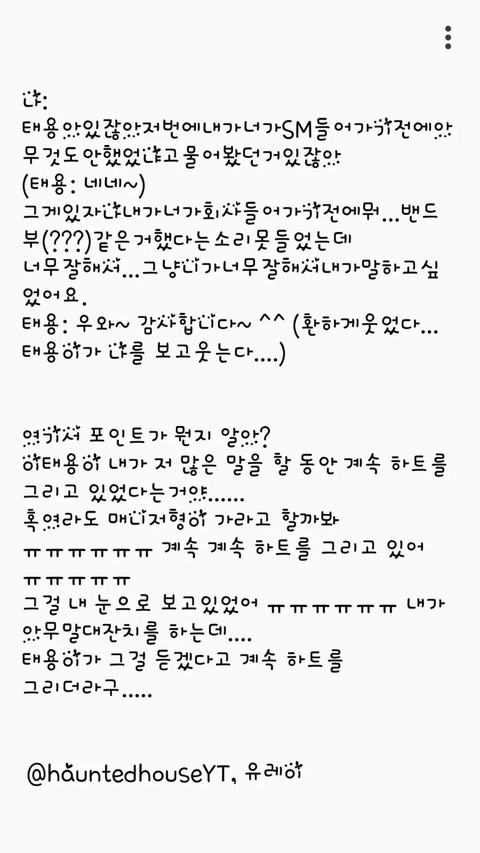 나:
태용아있잖아저번에내가너가SM들어가기전에아
무것도안했었냐고물어봤던거있잖아
(태용: 네네~)
그게있자나내가너가회사들어가기전에뭐...밴드
부(???)같은거했다는소리못들었는데
너무잘해서...그냥니가너무잘해서내가말하고싶
었어요.
태용: 우와~ 감사합니다~ ^^ (환하게웃었다...
태용이가 나를 보고웃는다....)
여기서 포인트가 뭔지 알아?
이태용이 내가 저 많은 말을 할 동안 계속 하트를
그리고 있었다는거야......
혹여라도 매니저형이 가라고 할까봐
ㅠㅠㅠㅠㅠㅠ 계속 계속 하트를 그리고 있어
ㅠㅠㅠㅠㅠ
그걸 내 눈으로 보고있었어 ㅠㅠㅠㅠㅠㅠ 내가
아무말대잔치를 하는데....
태용이가 그걸 듣겠다고 계속 하트를
그리더라구.....
@hauntedhouseYT, 유레이